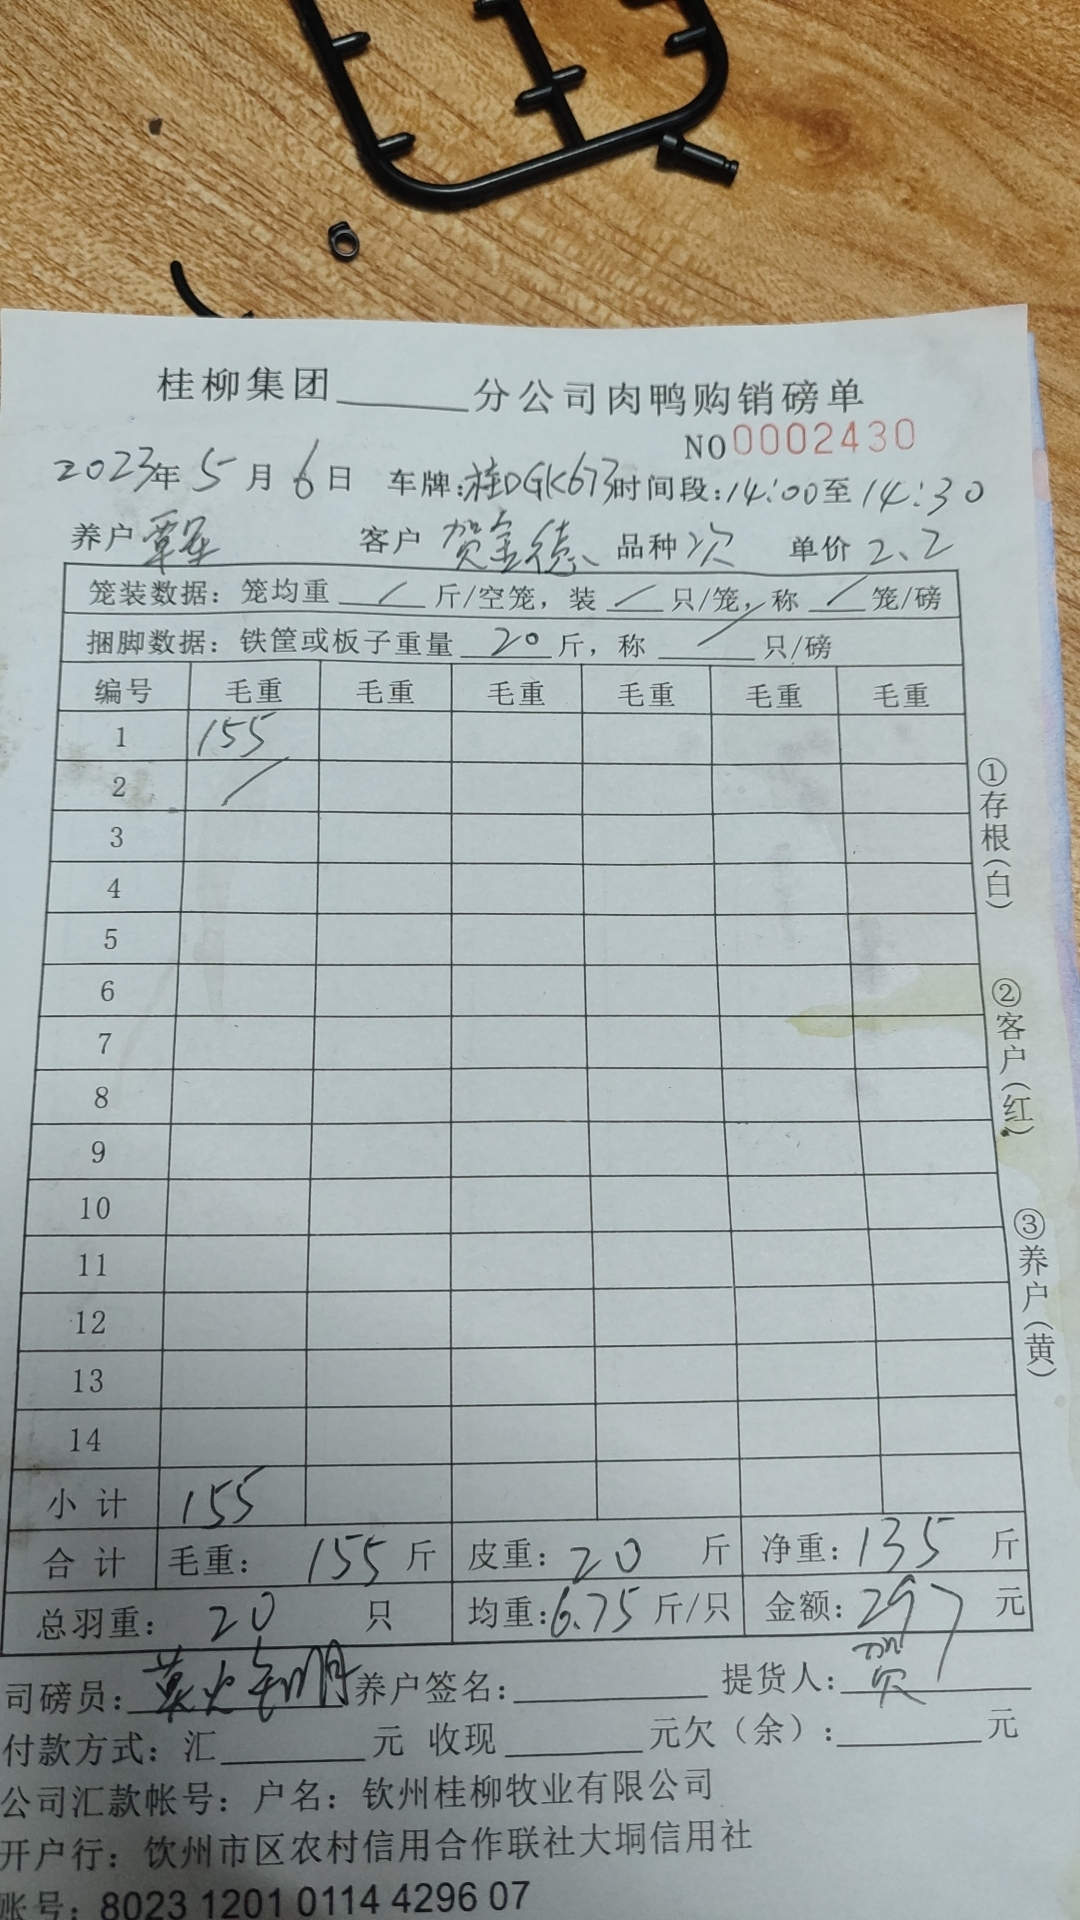 桂柳集团______分公司肉鸭购销磅单
NO 0002430
2023年 5月 6日 车牌:桂DGK673 时间段:14:00至14:30
养户 覃军 客户 贺金德 品种 次 单价 2.2
笼装数据：笼均重 / 斤/空笼，装 / 只/笼，称 / 笼/磅
捆脚数据：铁筐或板子重量 20 斤，称 / 只/磅
编号 毛重 毛重 毛重 毛重 毛重 毛重
1 155
2 /
3
4
5
6
7
8
9
10
11
12
13
14
小计 155
合计 毛重： 155 斤 皮重： 20 斤 净重： 135 斤
总羽重： 20 只 均重：6.75 斤/只 金额：297 元
司磅员： 养户签名：______ 提货人：贺
付款方式：汇______元 收现______元欠（余）：______元
公司汇款帐号：户名：钦州桂柳牧业有限公司
开户行：饮州市区农村信用合作联社大垌信用社
账号：8023 1201 0114 4296 07
①存根（白）
②客户（红）
③养户（黄）